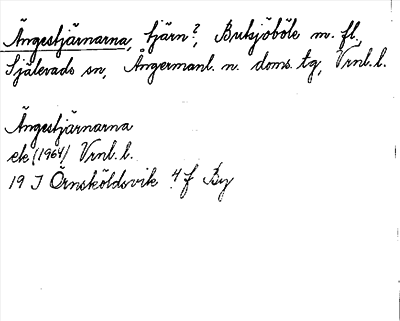 Ängestjärnarna, tjärn?, Butsjöböle m. fl.
Själevads sn, Ångermanl. n. doms. tg, Vrnl. l.
Ängestjärnarna
ek (1964) Vrnl. l.
19 J Örnsköldsvik 4 f By